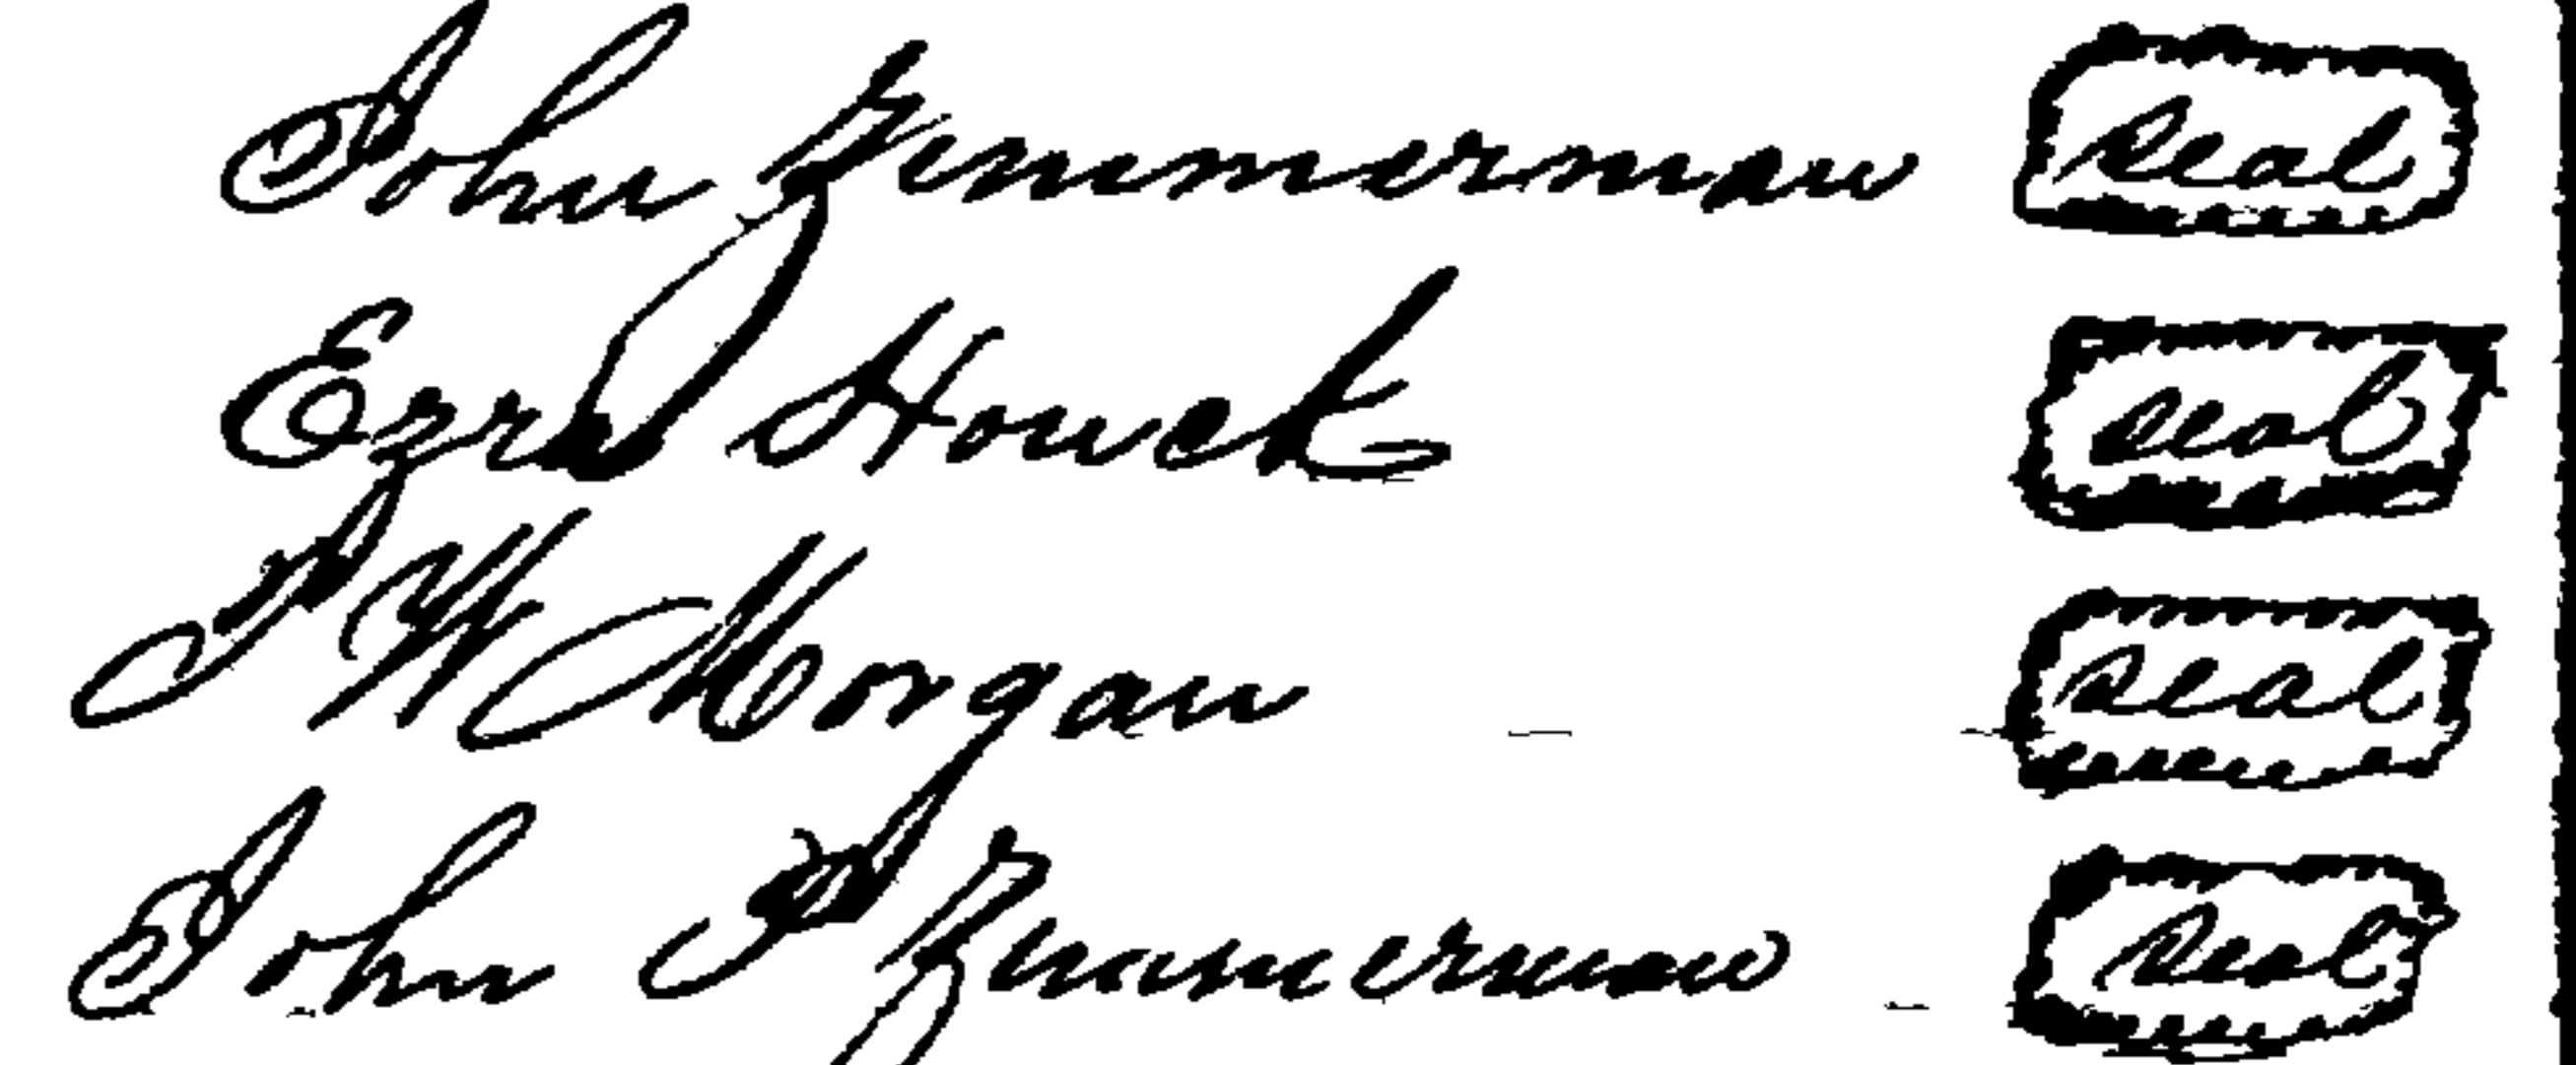 John Zimmerman Seal
Ezra Houck Seal
T W Morgan Seal
John T Zimmerman Seal